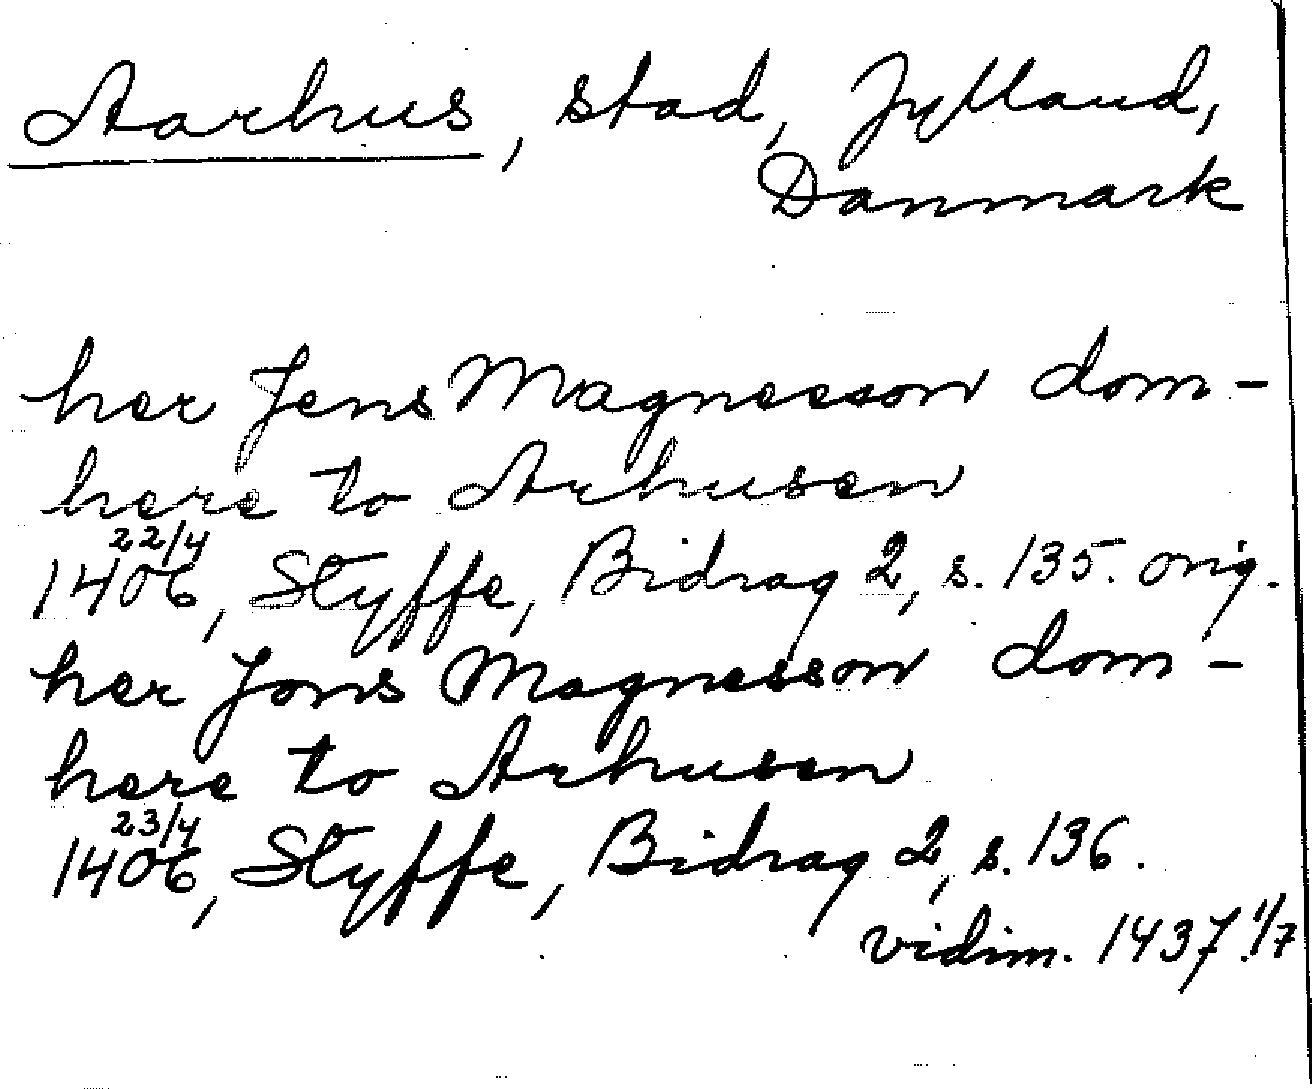 Aarhus, stad, Jylland,
Danmark
her Jens Magnesson dom-
here to Arhusen
22/4
1406, Styffe, Bidrag 2, s. 135. orig.
her Jons Magnesson dom-
here to Arhusen
23/4
1406, Styffe, Bidrag 2, s. 136.
vidim. 1437 1/7